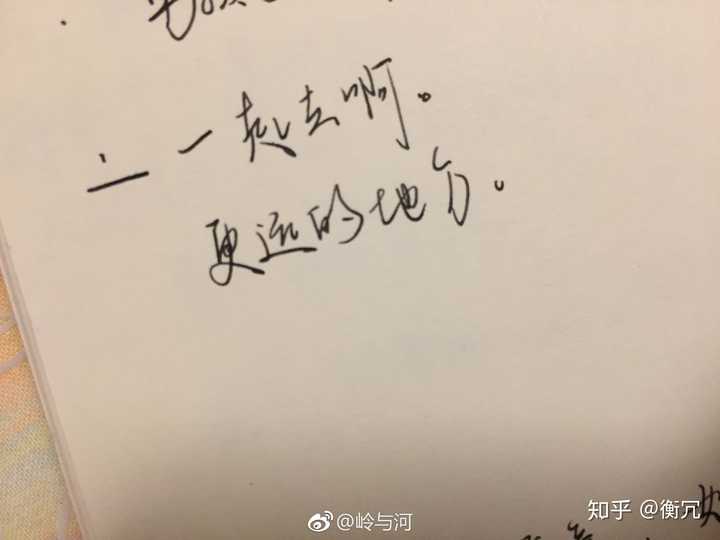 一起去啊。
更远的地方。
知乎 @衡冗
@岭与河